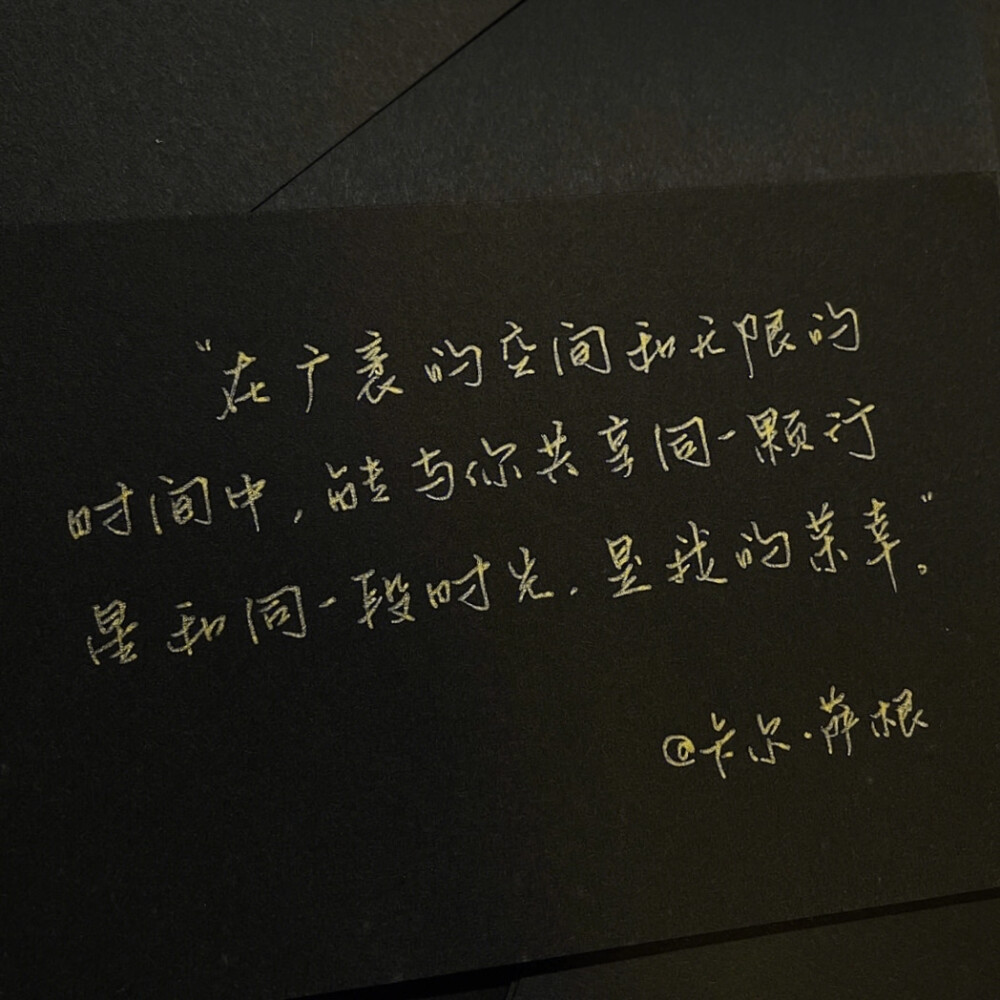 "在广袤的空间和无限的
时间中,能与你共享同一颗行
星和同一段时光,是我的荣幸。"
@卡尔·萨根